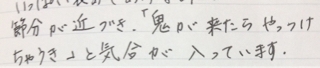 節分が近づき、「鬼が来たらやっつけ
ちゃうき」と気合が入っています。